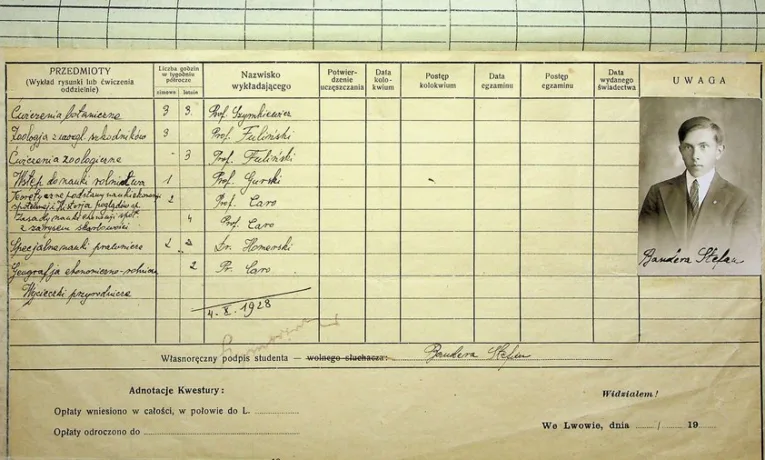 PRZEDMIOTY
(Wykład rysunki lub ćwiczenia
oddzielnie)
Liczba godzin
w tygodniu
półrocze
zimowe
letnie
Nazwisko
wykładającego
Potwier-
dzenie
uczęszczania
Data
kolo-
kwium
Postęp
kolokwium
Data
egzaminu
Postęp
egzaminu
Data
wydanego
świadectwa
UWAGA
Ćwiczenia botaniczne 3 3 Prof. Szymkiewicz
Zoologja z uwzgl. szkodników 3 Prof. Fuliński
Ćwiczenia zoologiczne - 3 Prof. Fuliński
Wstęp do nauki rolnictwa 1 Prof. Gurski
Teoretyczne podstawy nauki ekonomji
społecznej i Historja poglądów 2 Prof. Caro
Zasady nauki ekonomji społ.
z zarysem skarbowości 4 Prof. Caro
Specjalne nauki prawnicze 2 2 Dr. Homerski
Geografja ekonomiczno-rolnicza 2 Pr. Caro
Wycieczki przyrodnicze
4.X.1928
Bandera Stefan
Własnoręczny podpis studenta — wolnego słuchacza: Bandera Stefan
Adnotacje Kwestury:
Widziałem!
Opłaty wniesiono w całości, w połowie do L.
Opłaty odroczono do
We Lwowie, dnia / 19